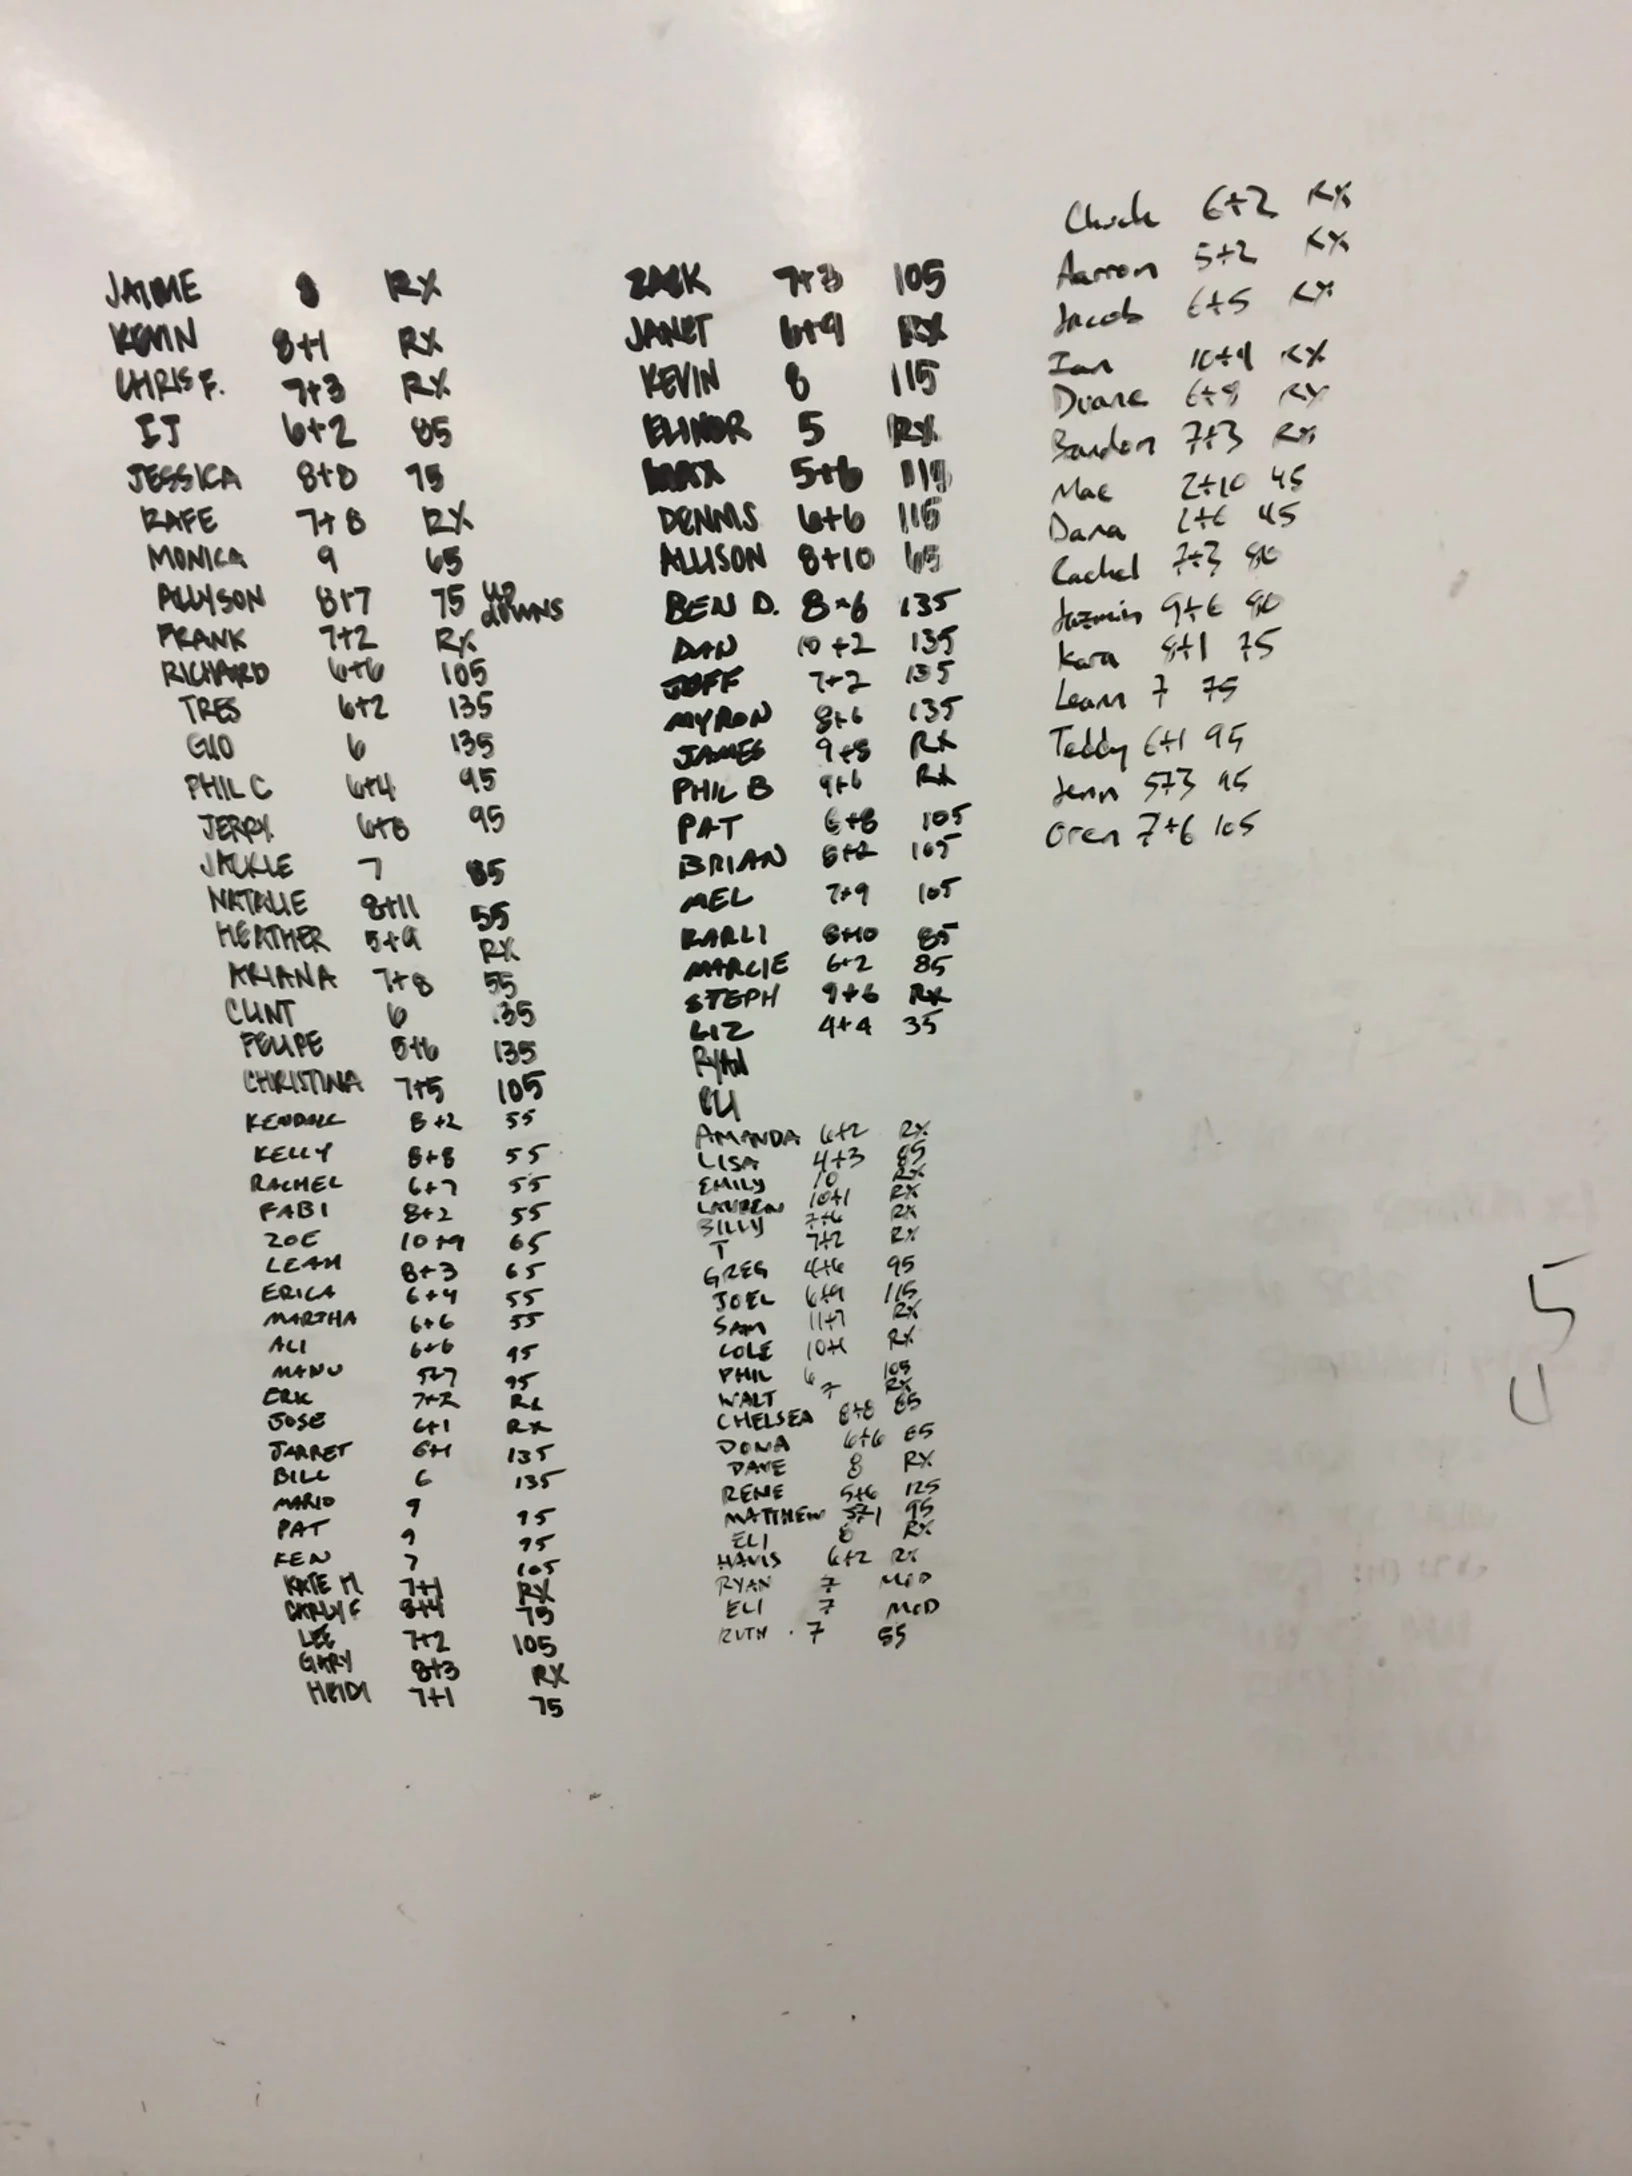 JAIME 8 RX
KEVIN 8+1 RX
CHRIS F. 7+3 RX
IJ 6+2 85
JESSICA 8+8 75
RAFE 7+8 RX
MONICA 9 65
ALLYSON 8+7 75 UP DOWNS
FRANK 7+2 RX
RICHARD 6+6 105
TRES 6+2 135
GUO 6 135
PHIL C 6+4 95
JERRY 6+8 95
JACKIE 7 85
NATALIE 8+11 55
HEATHER 5+9 RX
ARIANA 7+8 55
CLINT 6 135
FELIPE 5+6 135
CHRISTINA 7+5 105
KENDALL 8+2 55
KELLY 8+8 55
RACHEL 6+7 55
FABI 8+2 55
ZOE 10+9 65
LEAH 8+3 65
ERICA 6+4 55
MARTHA 6+6 55
ALI 6+6 95
MANU 5+7 95
ERIK 7+2 RX
JOSE 6+1 RX
JARRET 6+1 135
BILL 6 135
MARIO 9 95
PAT 9 95
KEN 7 105
KATE M 7+1 RX
CARLY F 8+4 75
LEE 7+2 105
GARY 8+3 RX
HEIDI 7+1 75
ZACK 7+3 105
JANET 6+9 RX
KEVIN 8 115
ELINOR 5 RX
MAX 5+6
DENNIS 6+6 115
ALLISON 8+10 65
BEN D. 8+6 135
DAN 10+2 135
JEFF 7+2 135
MYRON 8+6 135
JAMES 9+8 RX
PHIL B 9+6 RX
PAT 6+8 105
BRIAN 8+2 105
MEL 7+9 105
KARLI 8+10 85
MARCIE 6+2 85
STEPH 9+6 RX
LIZ 4+4 35
RYAN
ELI
AMANDA 6+2 RX
LISA 4+3 85
EMILY 10 RX
LAUREN 10+1 RX
BILLY 7+6 RX
T 7+2 RX
GREG 4+6 95
JOEL 6+9 115
SAM 11+7 RX
COLE 10+1 RX
PHIL 6 105
WALT 7 RX
CHELSEA 8+8 85
DONA 6+6 65
DAVE 8 RX
RENE 5+6 125
MATTHEW 5+1 95
ELI 8 RX
HAVIS 6+2 RX
RYAN 7 MOD
ELI 7 MOD
RUTH 7 55
Chuck 6+2 RX
Aarron 5+2 RX
Jacob 6+5 RX
Ian 10+4 RX
Duane 6+8 RX
Brandon 7+3 RX
Mae 2+10 45
Dana 45
Rachel 7+3 80
Jazmin 9+6 80
Kara 8+1 75
Leann 7 75
Teddy 6+1 95
Jenn 5+3 95
Oren 7+6 105
5